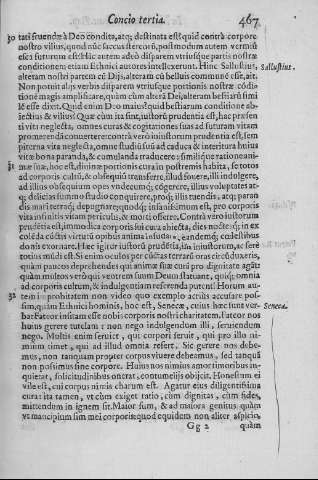 Concio tertia. 467
30 tati fruendæ à Deo condita, atq; destinata est: quid contrà corpore
nostro vilius, quod núc saccus stercorũ, postmodum autem vermiũ
esca futurum est? Hic autem adeò disparem vtriusque partis nostræ
conditionem etiam Ethnici autores intellexerunt. Hinc Sallustius, Sallustius.
alteram nostri partem cũ Dijs, alteram cũ belluis commune esse, ait.
Non potuit alijs verbis disparem vtriusque portionis nostræ cõdi-
tionẽ magis amplificare, quàm cùm alterã Dei, alteram bestiarũ simi
lẽ esse dixit. Quid enim Deo maius? quid bestiarum conditione ab-
iectius & vilius? Quæ cùm ita sint, iustorũ prudentia est, hac præsen
ti vita neglecta, omnes curas & cogitationes suas ad futuram vitam
promerendã conuertere: contrà verò iniustorum prudentia est, sem
piterna vita neglecta, omne studiũ suũ ad caduca & interitura huius
vitæ bona paranda, & cumulanda traducere: similique ratione ani-
31 mæ suæ, hoc est, diuinæ portionis cura in postremis habita, se totos
ad corporis cultũ, & obsequiũ transferre, illud fouere, illi indulgere,
ad illius obsequium opes vndecumq; cõgerere, illius voluptates at-
q; delicias summo studio conquirere, proq; illis tuendis, atq; paran
dis mari terraq; depugnare; quodq; insanissimum est, pro corporis
vita infinitis vitam periculis, & morti offerre. Contrà verò iustorum
prudētia est, immodica corporis sui cura abiecta, dies noctesq; in ex
colẽda cũctis virtutũ opibus anima insistere, eandemq; cælestibus
donis exornare. Hæc igitur iustorũ prudẽtia, illa iniustorum, ac ferè
totius mũdi est. Si enim oculos per cũctas terrarũ oras circũduxeris,
quàm paucos deprehendes qui animæ suæ curã pro dignitate agãt?
quàm multos verò qui ventrem suum Deum statuant, quiq; omnia
ad corporis cultum, & indulgentiam referenda putent? Horum au-
32 tem improbitatem non video quo exemplo acriùs accusare pos-
sim, quàm Ethnici hominis, hoc est, Senecæ, cuius hæc sunt ver- Seneca.
ba: Fateor insitam esse nobis corporis nostri charitatem. Fateor nos
huius gerere tutelam: non nego indulgendum illi, seruiendum
nego. Multis enim seruit, qui corpori seruit, qui pro illo ni-
mium timet, qui ad illud omnia refert. Sic gerere nos debe-
mus, non tanquam propter corpus viuere debeamus, sed tanquã
non possimus sine corpore. Huius nos nimius amor timoribus in-
quietat, solicitudinibus onerat, contumelijs obijcit. Honestum ei
vile est, cui corpus nimis charum est. Agatur eius diligentissima
cura: ita tamen, vt cùm exiget ratio, cùm dignitas, cùm fides,
mittendum in ignem sit. Maior sum, & ad maiora genitus quàm
vt mancipium sim mei corporis: quod equidem non aliter aspicio,
Gg 2 quàm